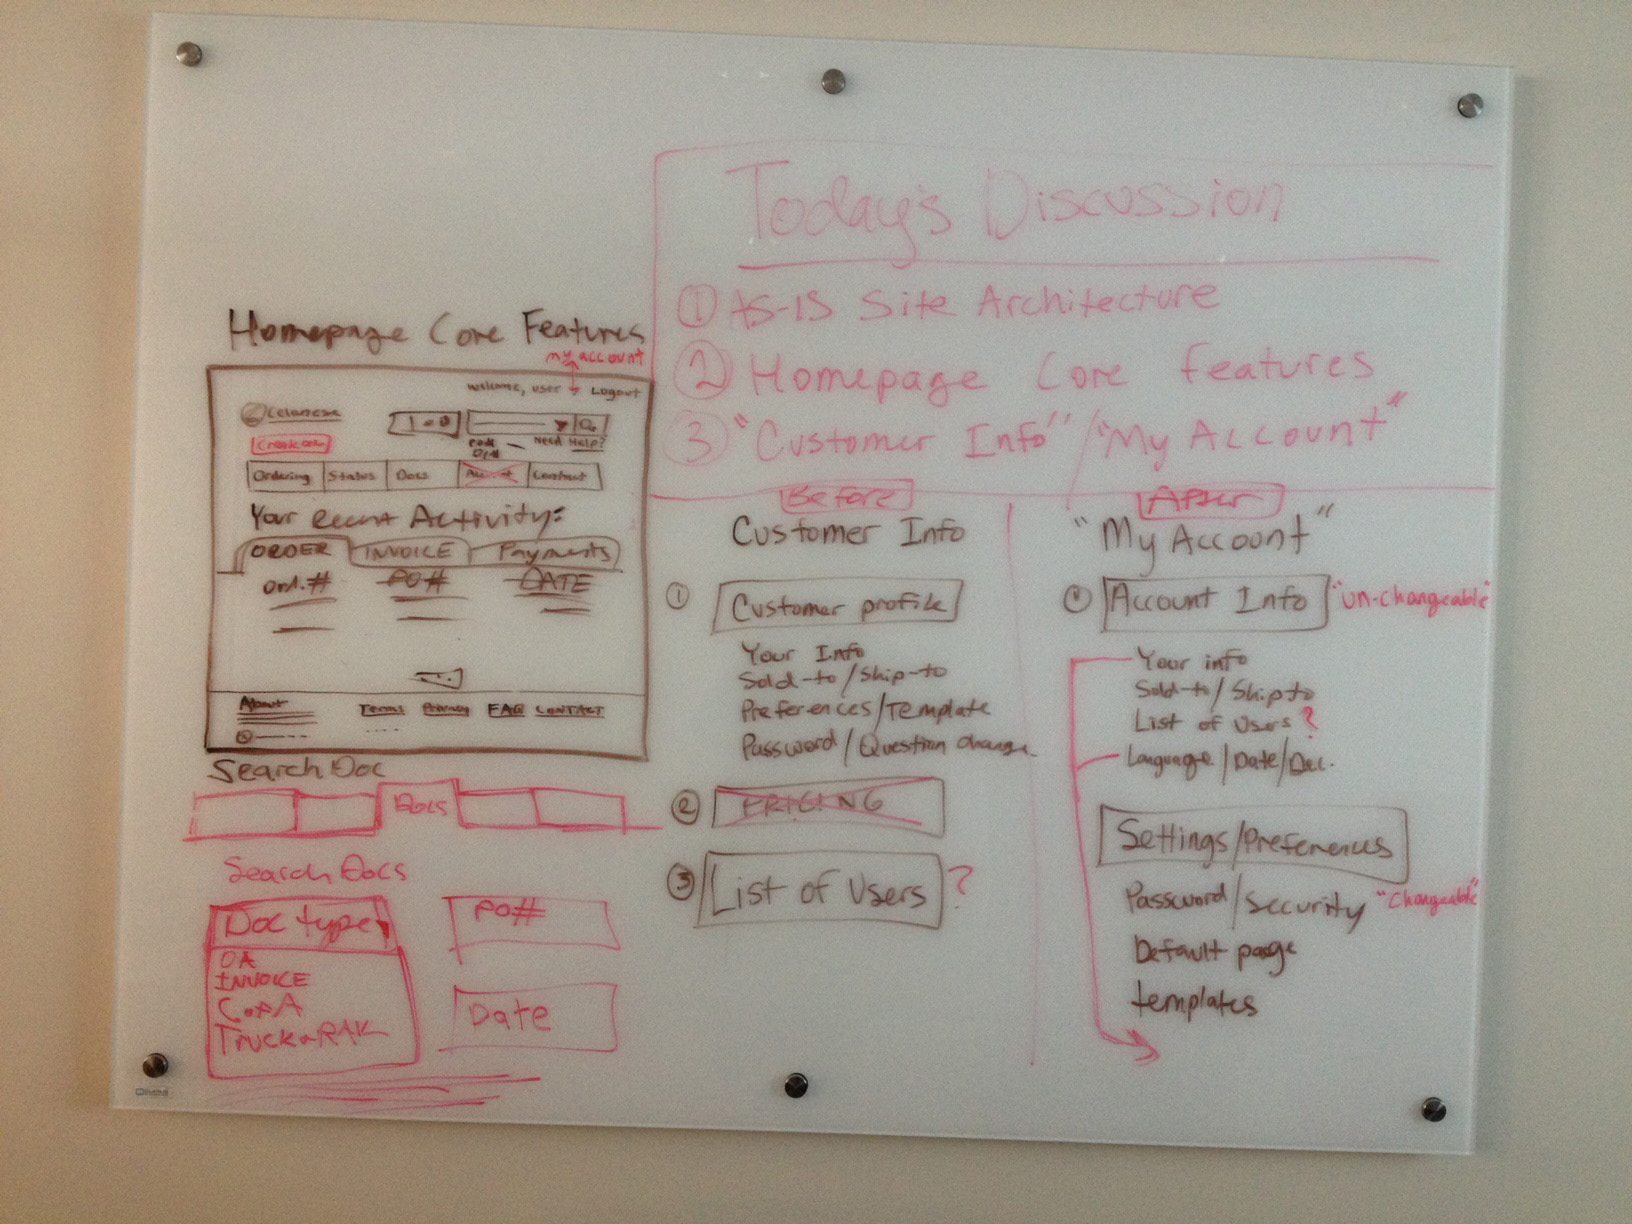 Today's Discussion
① AS-IS Site Architecture
② Homepage Core Features
③ "Customer Info" / "My Account"
Homepage Core Features
my account
welcome, user Logout
Celanese
Need Help?
Ordering Status Docs Contact
Your Recent Activity:
ORDER INVOICE Payments
Ord.# PO# DATE
About Terms Privacy FAQ CONTACT
Search Doc
Docs
Search Docs
Doc type PO#
OA
INVOICE
CofA
Date
Before
Customer Info
① Customer profile
Your Info
Sold-to/Ship-to
Preferences/Template
Password/Question change
② PRICING
③ List of Users ?
After
"My Account"
① Account Info "un-changeable"
Your info
Sold-to/Shipto
List of Users ?
Language/Date/Dec.
Settings/Preferences
Password/Security "Changeable"
Default page
templates